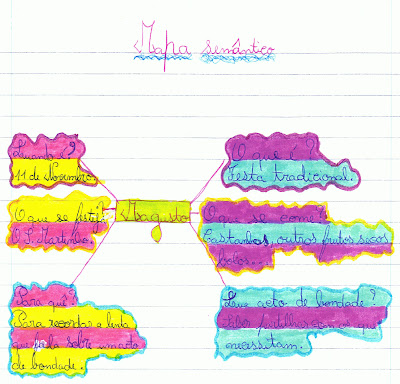 Mapa semântico
Quando é?
11 de Novembro.
O que é?
Festa tradicional.
O que se festeja?
O S. Martinho.
Magusto
O que se come?
Castanhas, outros frutos secos,
bolos...
Para quê?
Para recordar a lenda
que fala sobre um acto
de bondade.
Que acto de bondade?
que
necessitam.